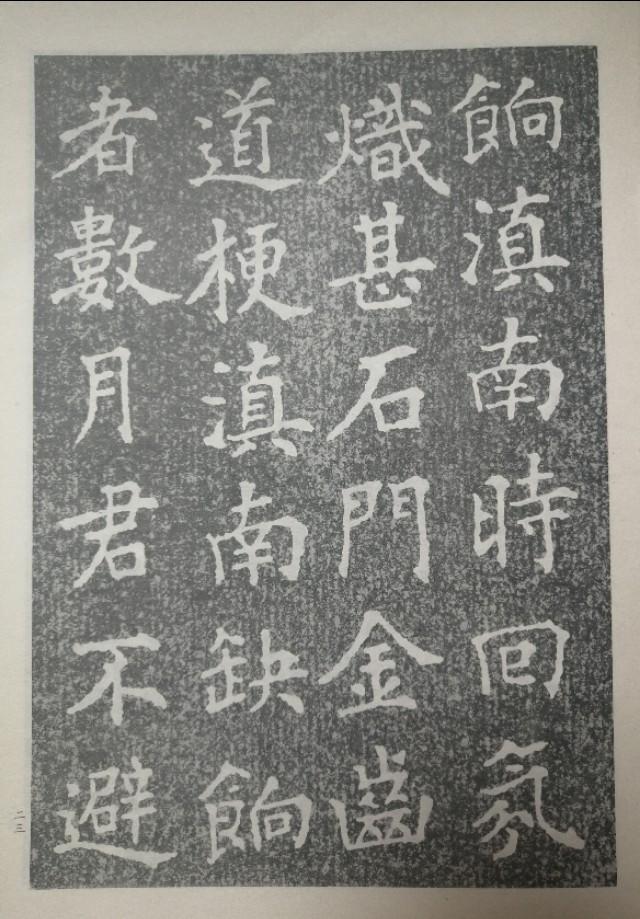 餉滇南時回氛
熾甚石門金齒
道梗滇南缺餉
者數月君不避
二三